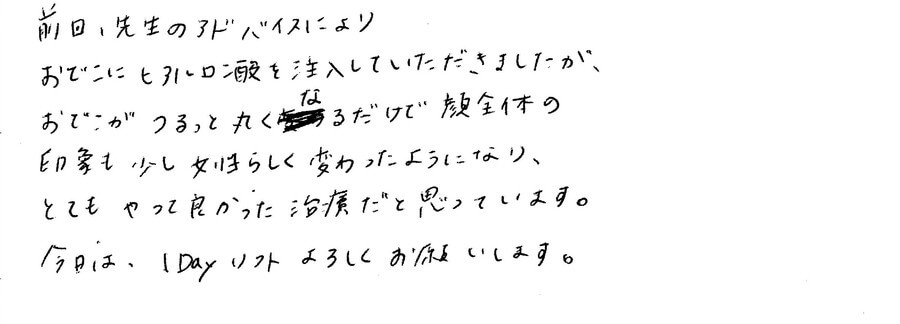 前回、先生のアドバイスにより
おでこにヒアルロン酸を注入していただきましたが、
おでこがつるっと丸くなるだけで顔全体の
印象も少し女性らしく変わったようになり、
とてもやって良かった治療だと思っています。
今日は、1Dayリフトよろしくお願いします。